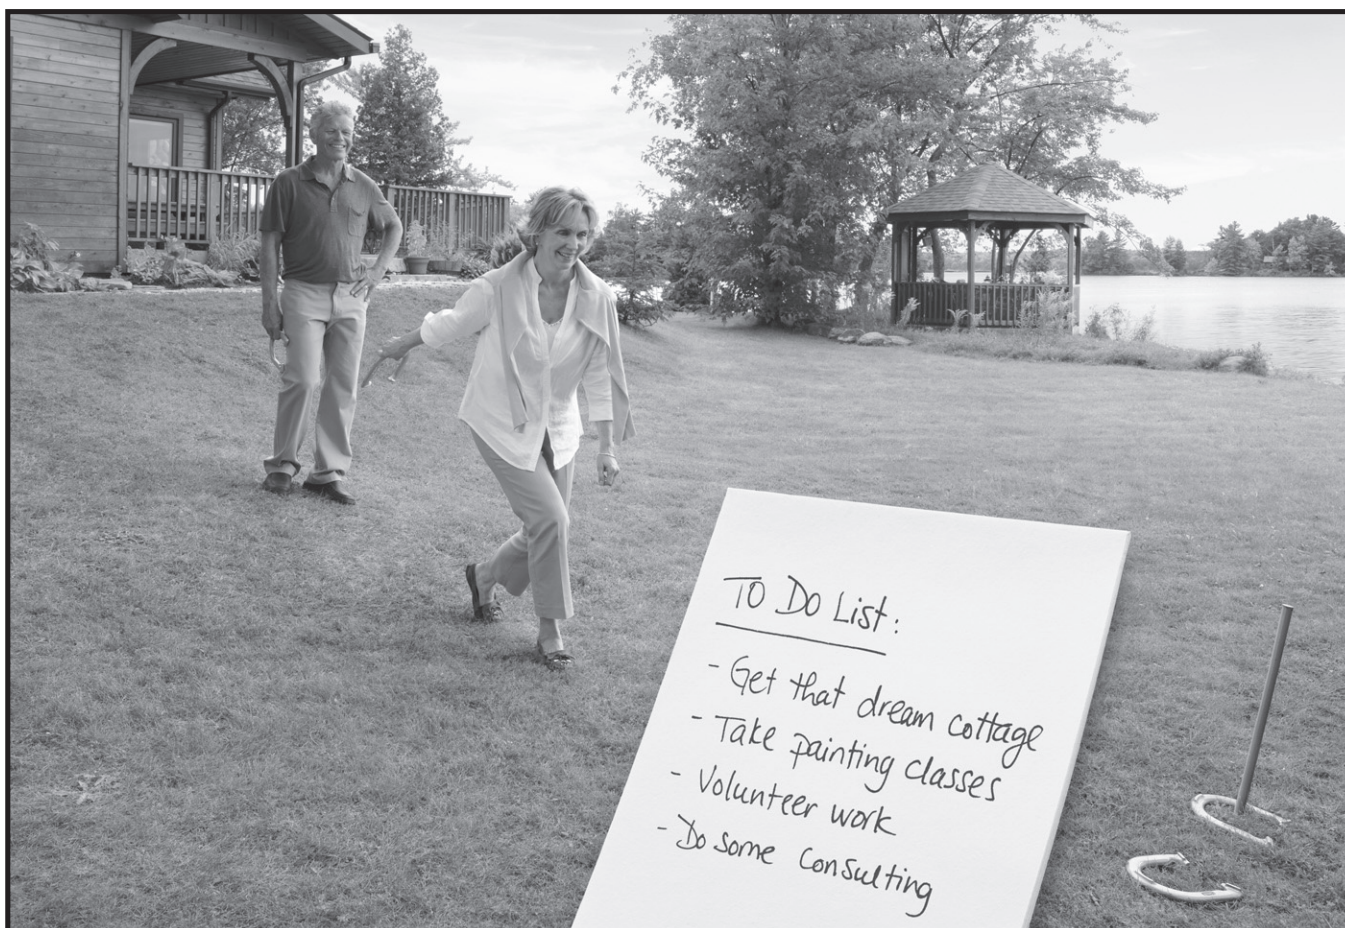 TO DO LIST:
- Get that dream cottage
- Take painting classes
- Volunteer work
- Do some consulting